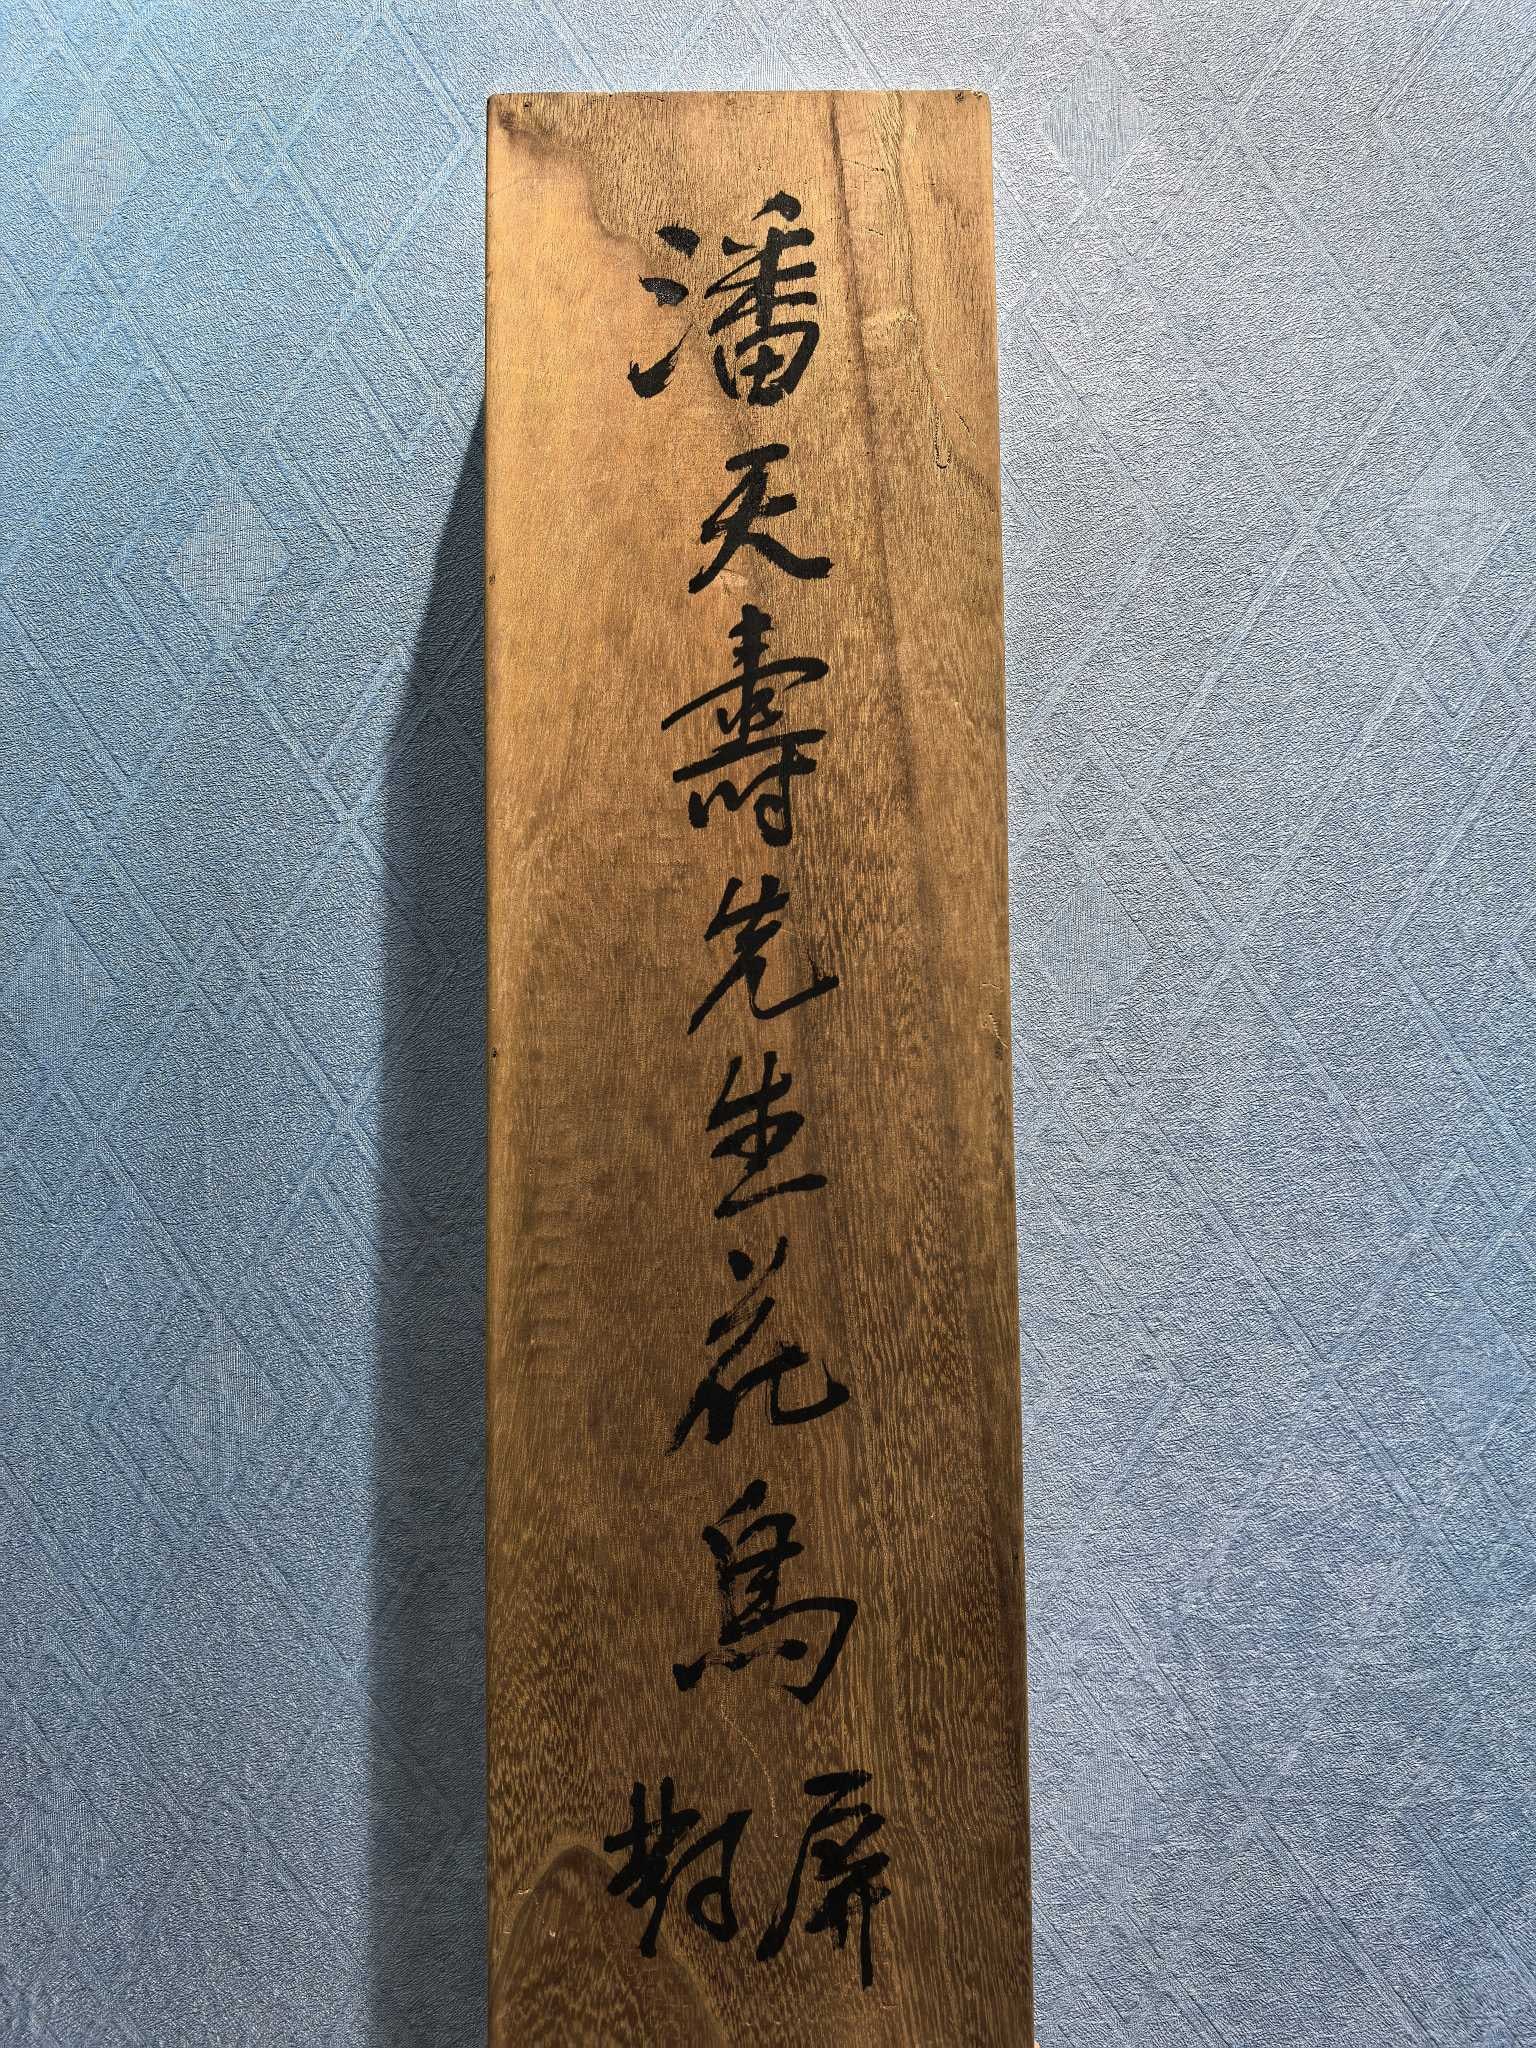 潘天壽先生花鳥
屏對